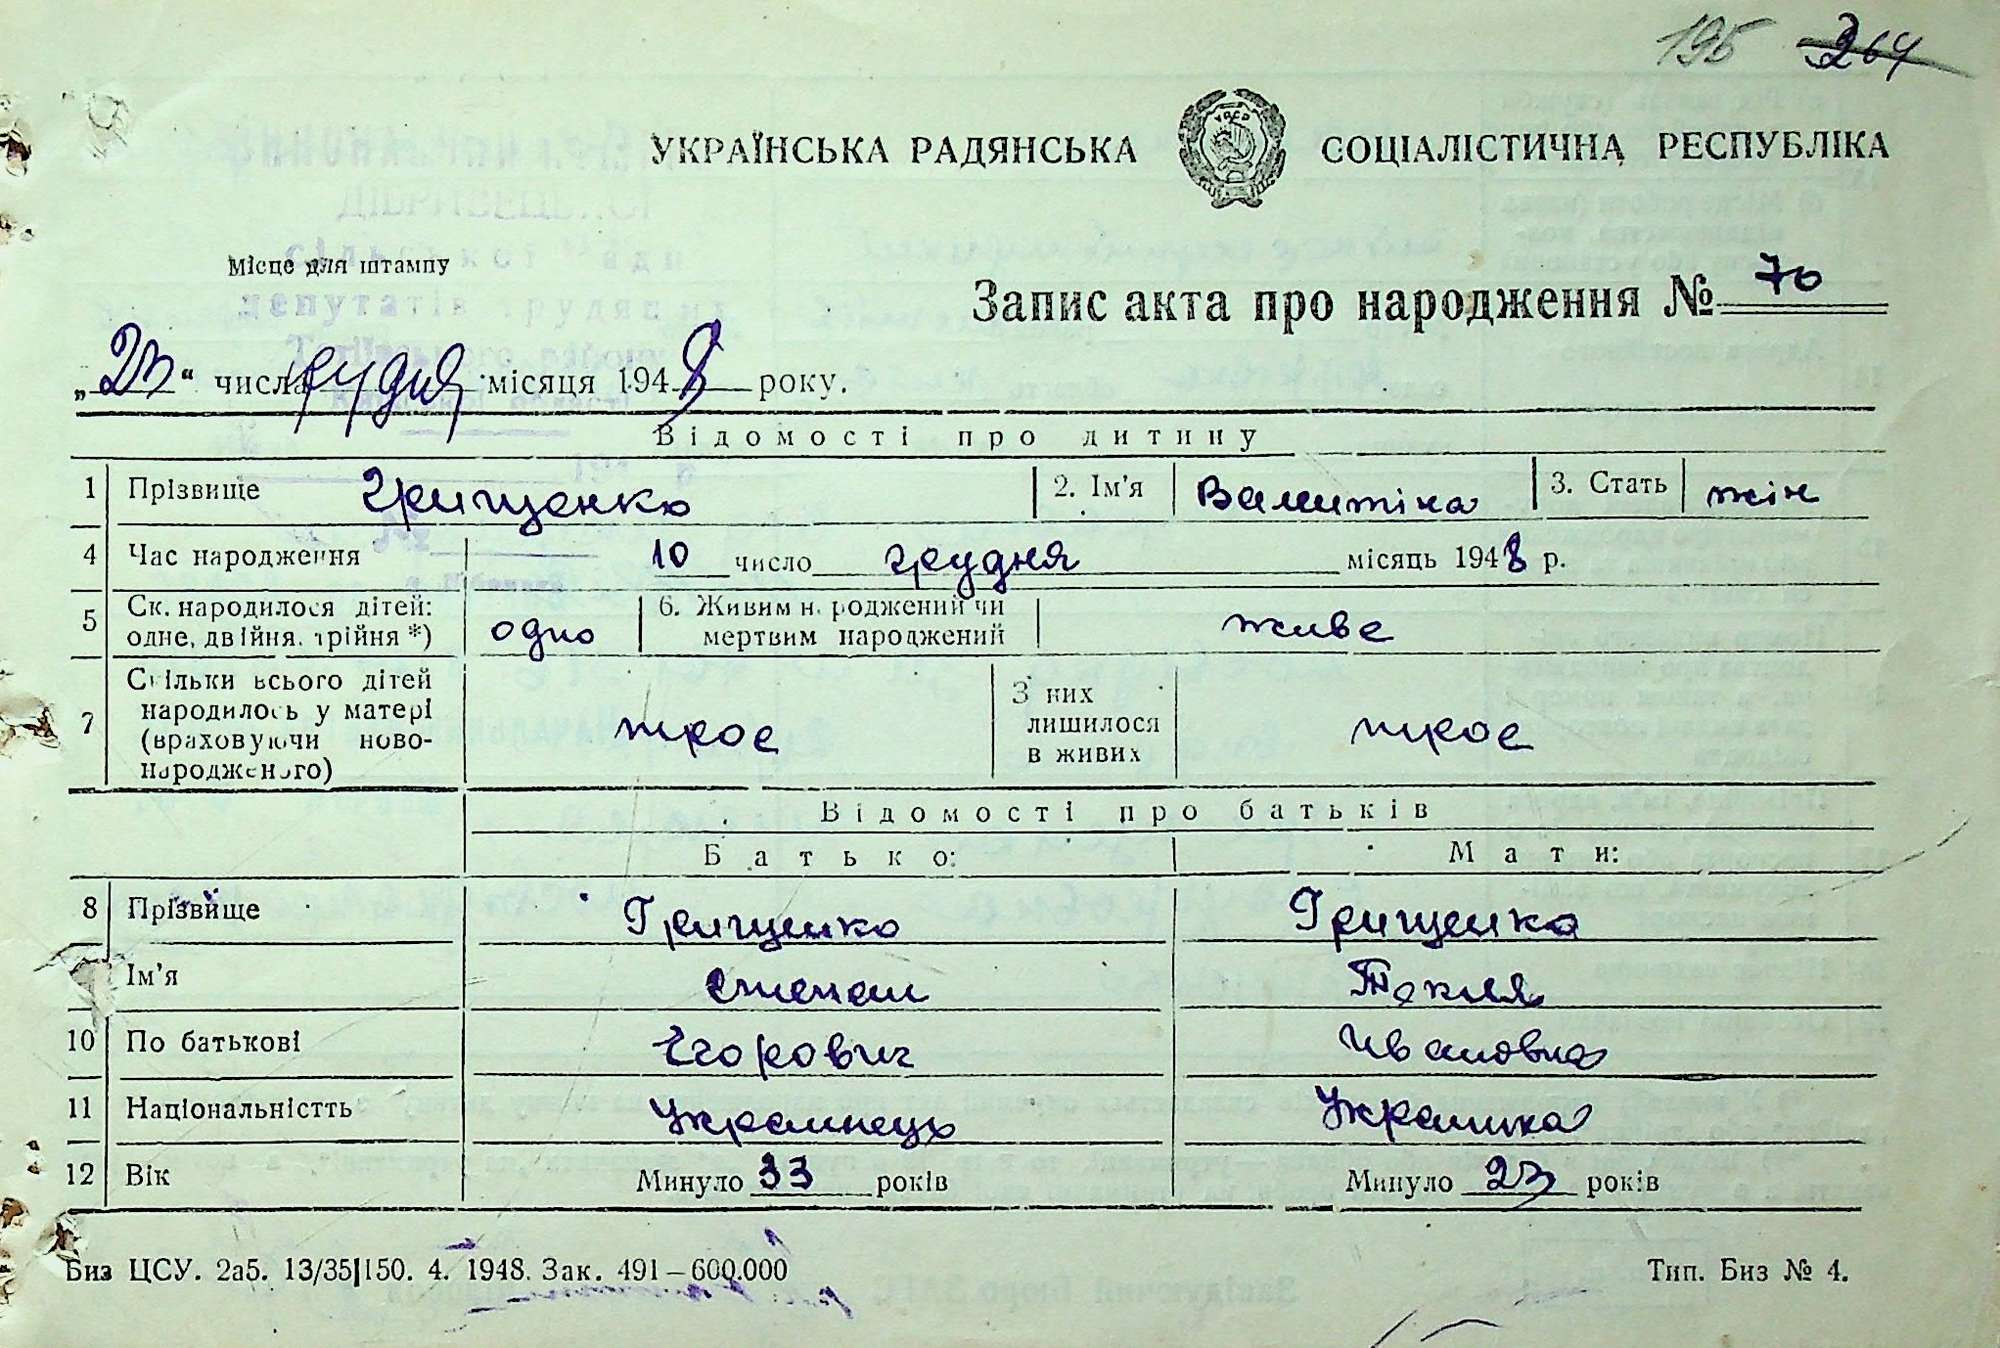 195 264
УКРАЇНСЬКА РАДЯНСЬКА СОЦІАЛІСТИЧНА РЕСПУБЛІКА
Місце для штампу
Запис акта про народження № 70
„23“ числа грудня місяця 1948 року.
Відомості про дитину
1 Прізвище Грищенко 2. Ім'я Валинтіна 3. Стать жін
4 Час народження 10 число грудня місяць 1948 р.
5 Ск. народилося дітей: одне, двійня, трійня *) одно 6. Живим народжений чи мертвим народжений живе
7 Скільки всього дітей народилось у матері (враховуючи новонародженого) трое З них лишилося в живих трое
Відомості про батьків
Батько: Мати:
8 Прізвище Грищенко Грищенко
Ім'я Степан Текля
10 По батькові Єгорович Ивановна
11 Національністть Украинець Украинка
12 Вік Минуло 33 років Минуло 23 років
Биз ЦСУ. 2а5. 13/35|150. 4. 1948. Зак. 491–600.000 Тип. Биз № 4.